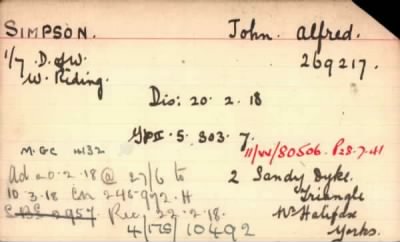 SIMPSON. John Alfred.
1/7 D. of W. 269217.
W. Riding.
Dis: 20. 2. 18
GPII. 5. 303. 7.
M.GC 4132 11/W/80506. P28.7.41
Ad 20.2.18 @ 27/6 to 2 Sandy Dyke.
10.3.18 Triangle
Rec. 22.2.18. Nr Halifax
10492 Yorks.